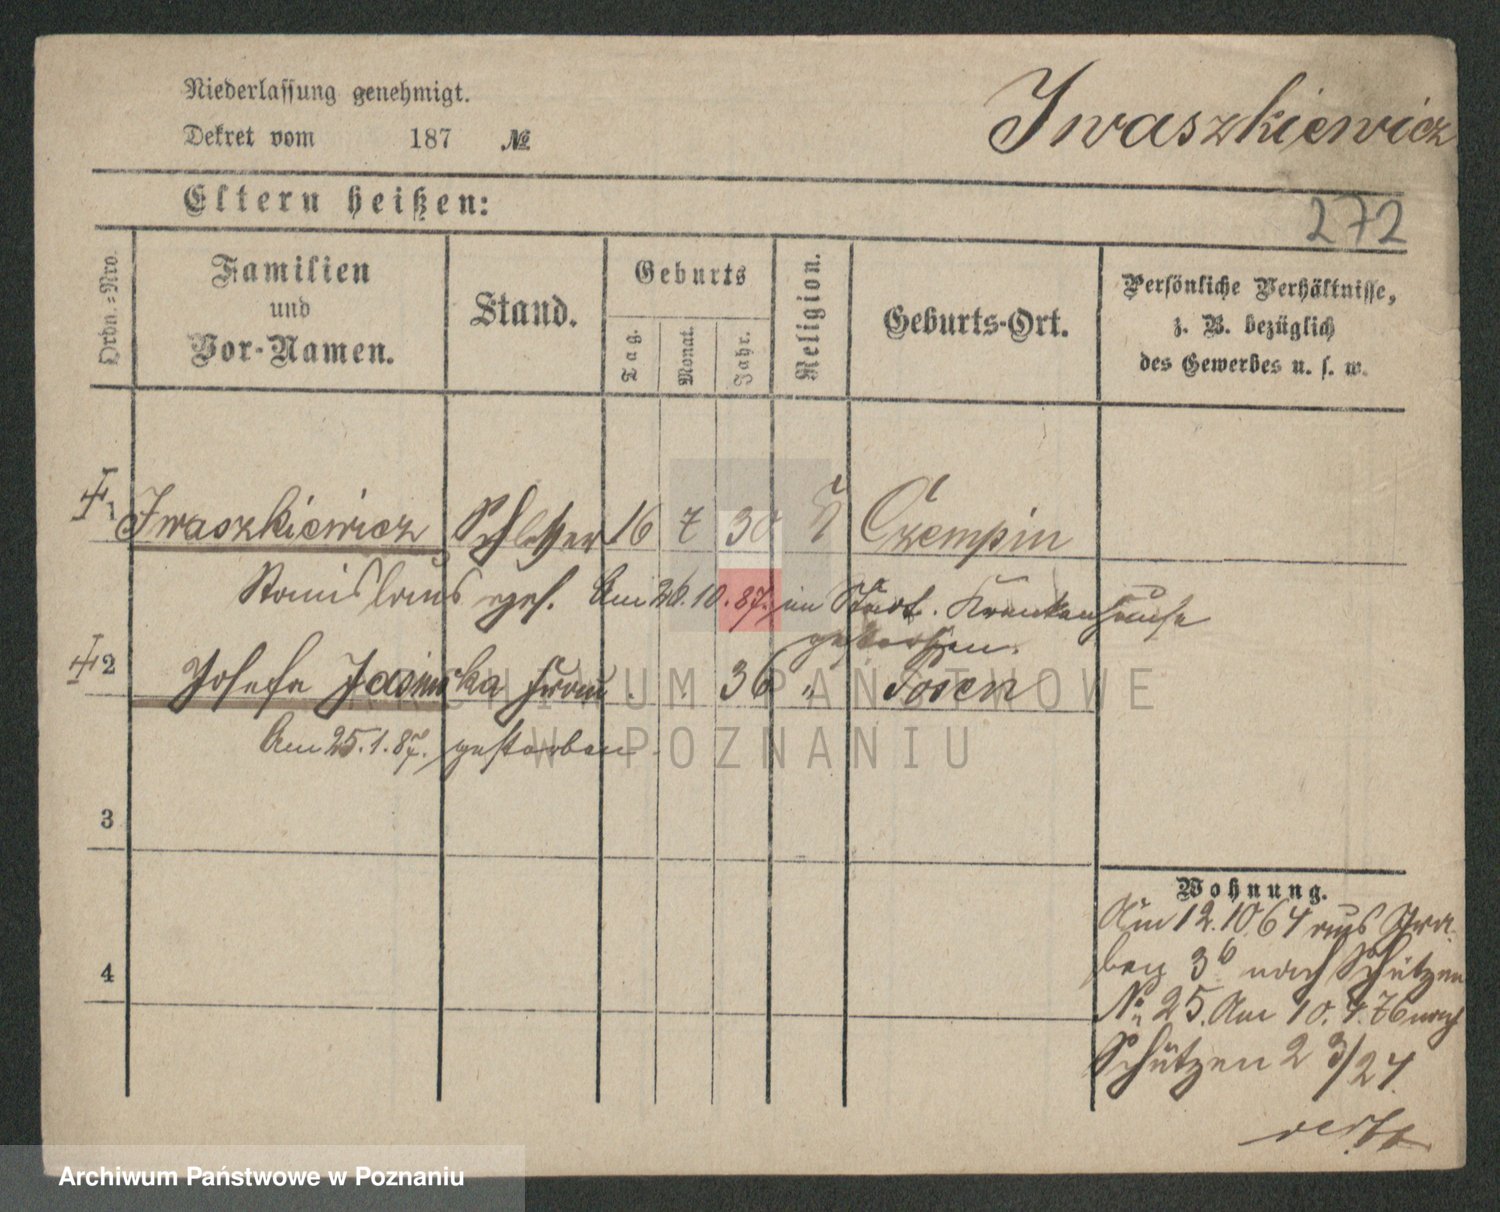 Niederlassung genehmigt.
Dekret vom 187 №
Iwaszkiewicz
Eltern heißen:
272
Ordn.=Nro.
Familien
und
Vor-Namen.
Stand.
Geburts
Tag.
Monat.
Jahr.
Religion.
Geburts-Ort.
Persönliche Verhältnisse,
z. B. bezüglich
des Gewerbes u. s. w.
1 Iwaszkiewicz Schlosser 16 7 30 Czempin
Stanislaus Am 26.10.87. im Städt. Krankenhause
gestorben.
2 Josefa Jasinska Frau 36 " Posen
Am 25.1.87. gestorben
3
4
Wohnung.
Am 12.10 64 aus Gra-
ben 3b nach Schützen
No 25. Am 10.4.76 nach
Schützen 23/24.
ARCHIWUM PAŃSTWOWE
W POZNANIU
Archiwum Państwowe w Poznaniu